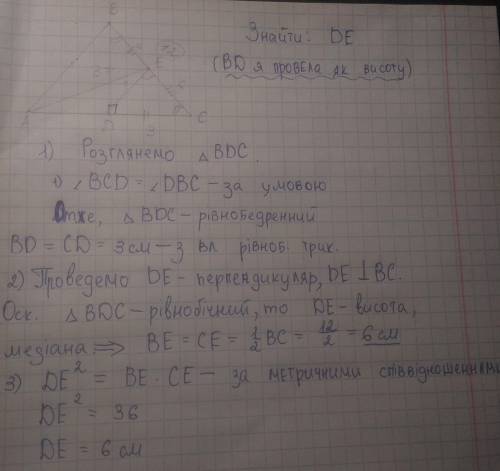 Знайти: DE
(BD я провела як висоту)
B
E
3
A
D
3
C
1) Розглянемо △BDC.
1) ∠BCD = ∠DBC – за умовою
Отже, △BDC – рівнобедренний
BD = CD = 3 см – з вл. рівноб. трик.
2) Проведемо DE – перпендикуляр, DE ⊥ BC.
Оск. △BDC – рівнобічний, то DE – висота,
медіана ⟹ BE = CE = 1/2 BC = 12/2 = 6 см
3) DE² = BE · CE – за метричними співвідношеннями
DE² = 36
DE = 6 см